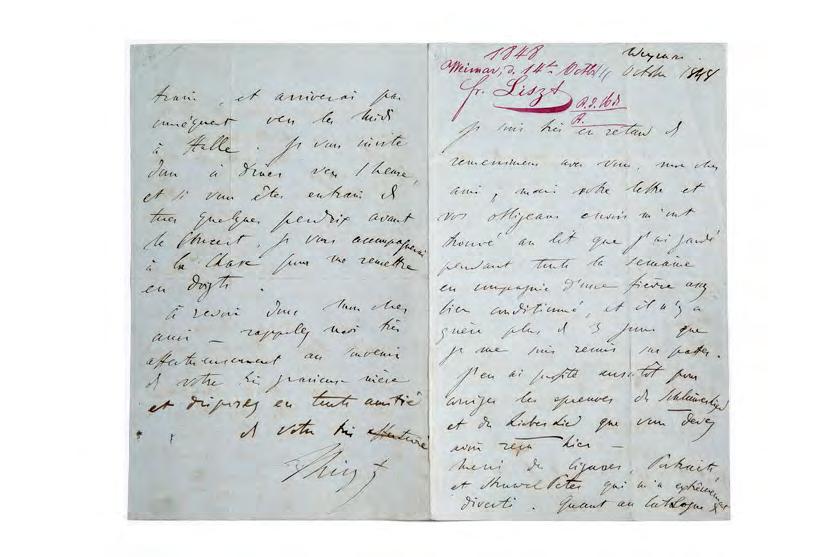 1848
Weimar, d. 14ten Octb
Weymar
Octbre 1848
fr. Liszt
Je suis très en retard de
remerciemens avec vous, mon cher
ami; mais votre lettre et
vos obligeans envois m'ont
trouvé au lit que j'ai gardé
pendant toute la semaine
en compagnie d'une fièvre assez
bien conditionnée, et il n'y a
guère plus de 3 jours que
je me suis remis sur pattes.
J'en ai profité aussitot pour
corriger les epreuves du Schlummerlied
et du Liebeslied que vous devez
avoir reçu hier —
Merci de cigares, Portraits
et Struwel Peter qui m'a extrêmement
diverti. Quant au Catalogue de
train, et arriverai par
conséquent vers les midi
à Halle. Je vous invite
donc à diner vers 1 heure,
et si vous êtes entrain de
tuer quelques perdrix avant
le Concert, je vous accompagnerai
à la Chasse pour me remettre
en doigts.
à revoir donc mon cher
ami — rappelez moi très
affectueusement au souvenir
de votre très gracieuse mère
et disposez en toute amitié
de votre très affectueux
F Liszt